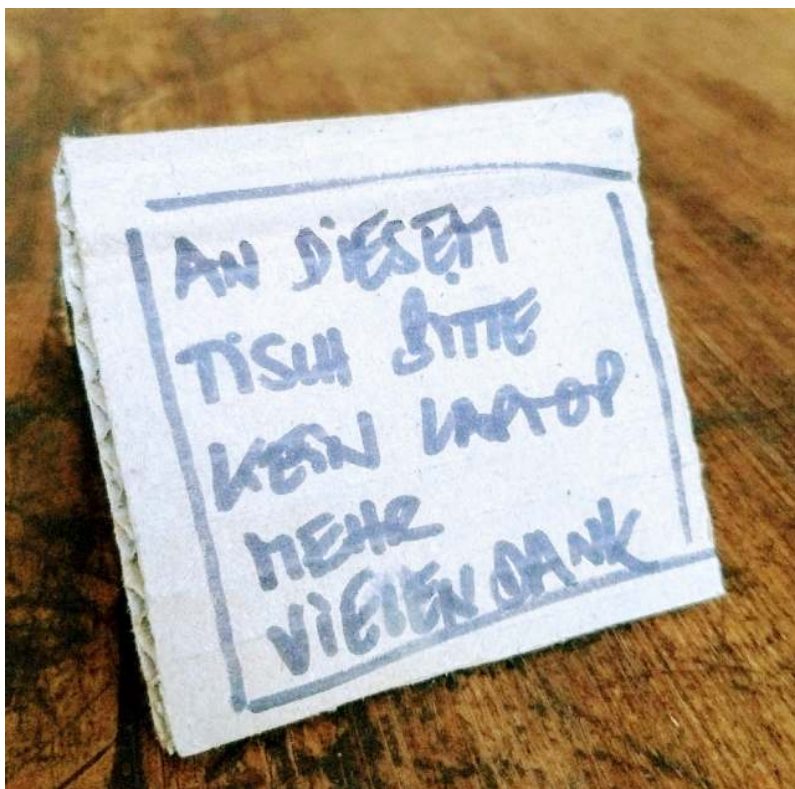 AN DIESEM
TISCH BITTE
KEIN LAPTOP
MEHR
VIELEN DANK